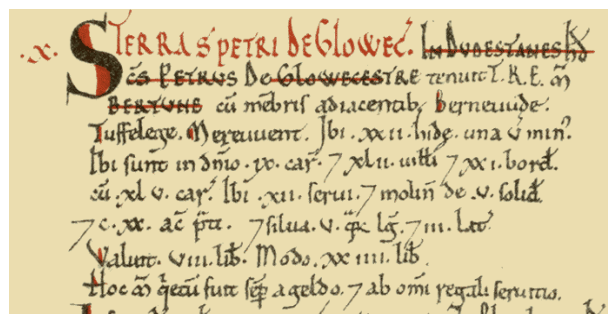 .x. TERRA S PETRI DE GLOWEC̃. IN DUDESTANES HD̃
SC̃S PETRUS De GLOWECESTRE tenuit T.R.E. m̃
BERTUNE cũ mẽbris adiacentib; Berneuuide.
Tuffelege. Mereuuent. Ibi .xxii. hide. una v̄ min⁹.
Ibi sunt in dñio .ix. car̃. 7 xlii. uiłłi 7 xxi. bord̃.
cũ .xl v. car̃. Ibi .xii. serui. 7 moliñ de .v. solid̃.
7 c.xx. ac̃ p̃ti. 7 silua .v. q̃ʒ lg̃. 7 iii. lat̃.
Valuit .viii. lib̃. Modo .xx iiii. lib̃.
Hoc m̃ q̃etũ fuit sẽp a geldo. 7 ab om̃i regali seruitio.